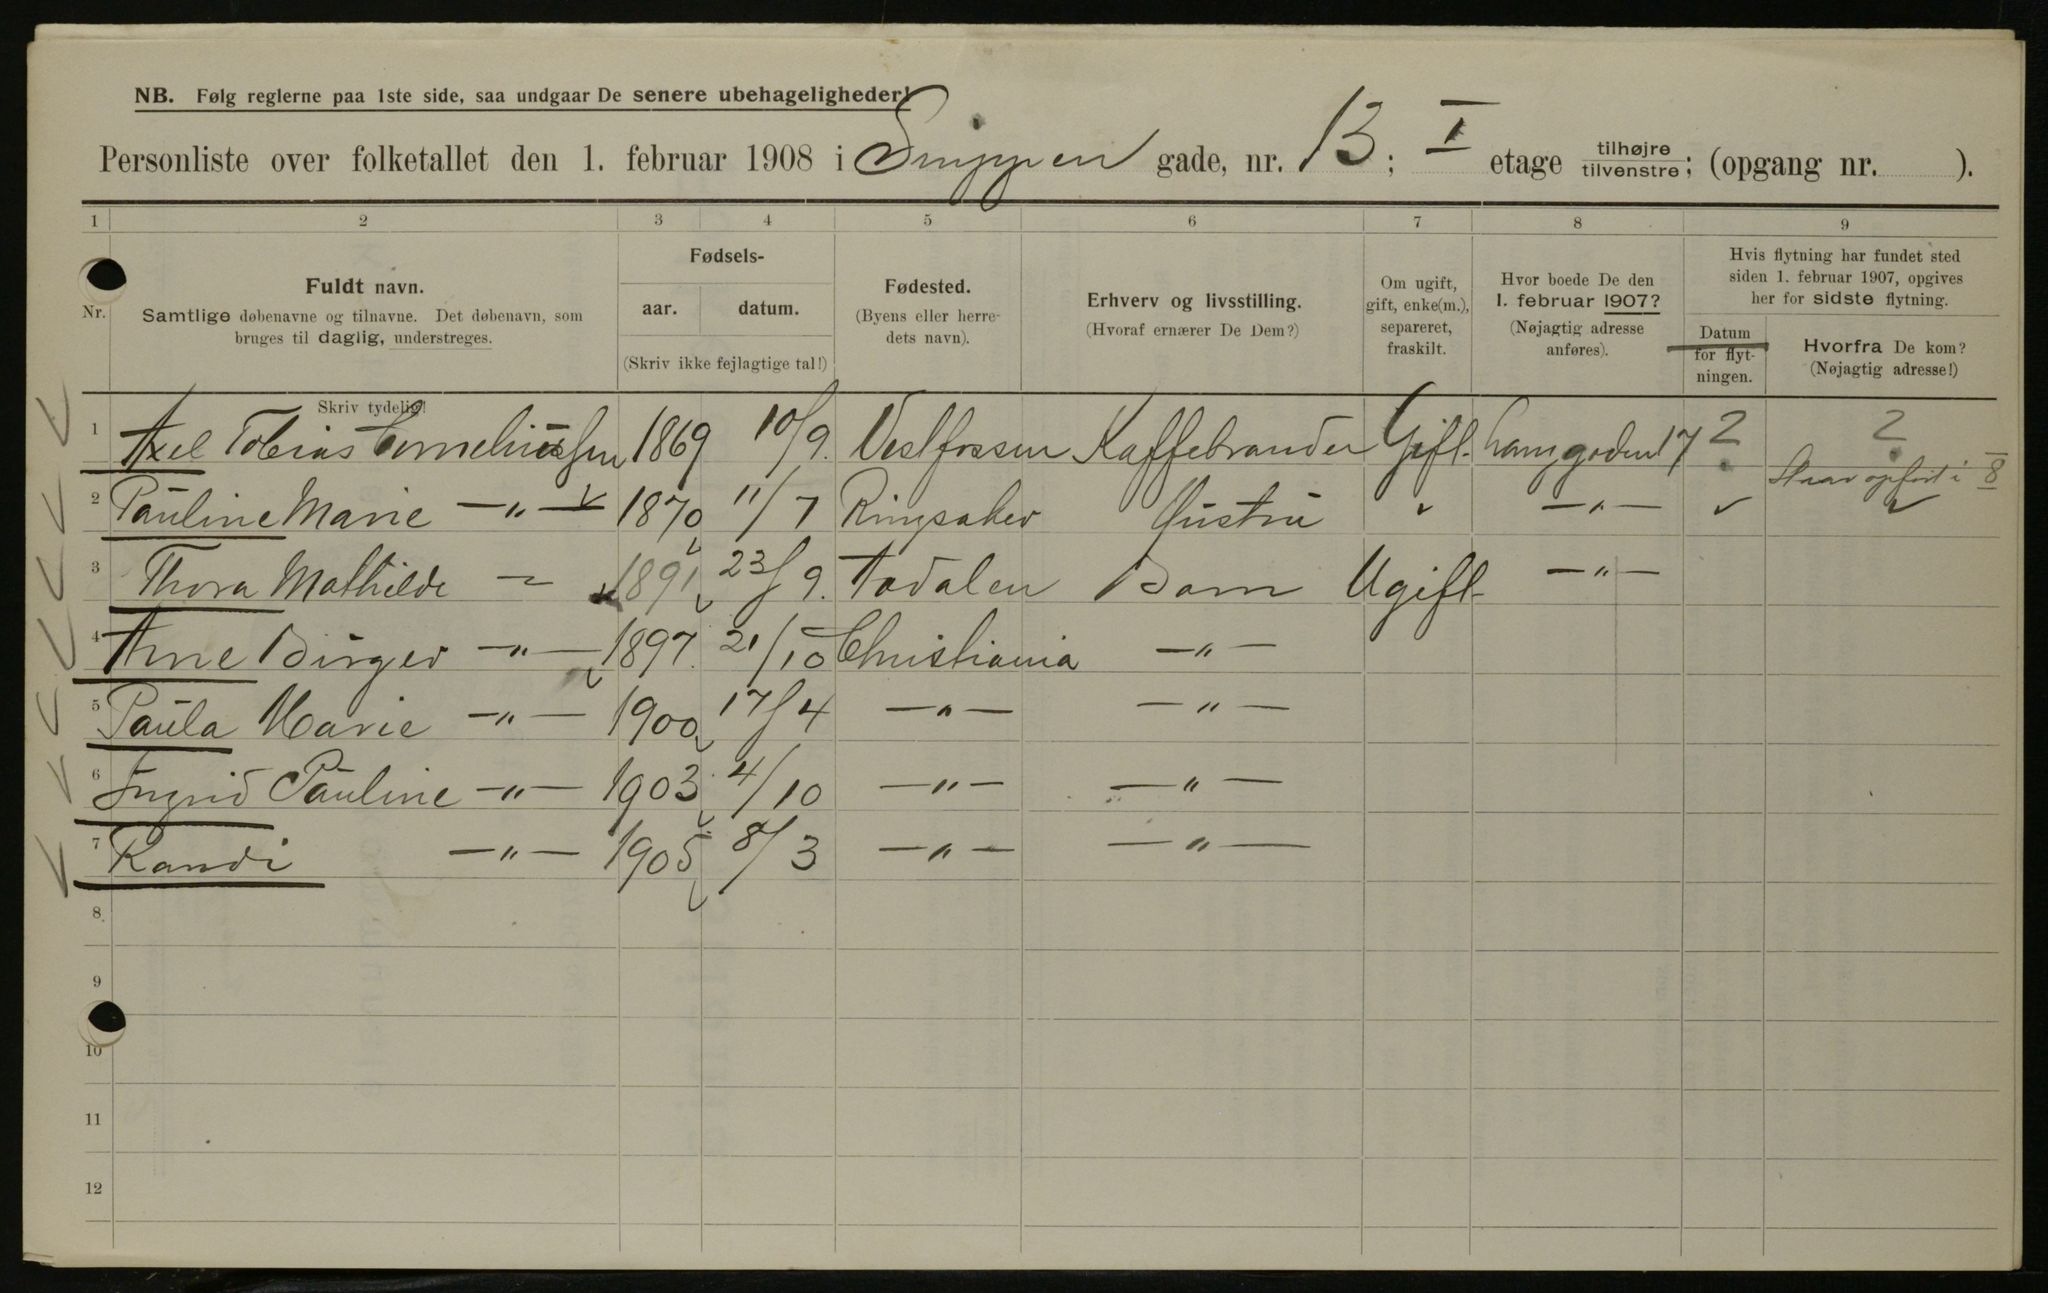 NB. Følg reglerne paa 1ste side, saa undgaar De senere ubehageligheder!
Personliste over folketallet den 1. februar 1908 i Snippen gade, nr. 13; I etage tilhøjre tilvenstre; (opgang nr. ).
1 2 3 4 5 6 7 8 9
Nr. Fuldt navn. Samtlige døbenavne og tilnavne. Det døbenavn, som bruges til daglig, understreges.
Fødsels- aar. datum. (Skriv ikke fejlagtige tal!)
Fødested. (Byens eller herredets navn).
Erhverv og livsstilling. (Hvoraf ernærer De Dem?)
Om ugift, gift, enke(m.), separeret, fraskilt.
Hvor boede De den 1. februar 1907? (Nøjagtig adresse anføres).
Hvis flytning har fundet sted siden 1. februar 1907, opgives her for sidste flytning.
Datum for flytningen.
Hvorfra De kom? (Nøjagtig adresse!)
Skriv tydelig!
1 Axel Tobias Corneliussen 1869 10/9. Vestfossen Kaffebrander Gift. Langgaden 17 ? ?
Staar opført i 8
2 Pauline Marie —"— 1870 11/7 Ringsaker Hustru " —"—
3 Thora Mathilde — 1891 23/9. Aadalen Barn Ugift —"—
4 Arne Birger —"— 1897. 21/10 Christiania —"—
5 Paula Marie —"— 1900 17/4 —"— —"—
6 Ingrid Pauline —"— 1903 4/10 —"— —"—
7 Randi —"— 1905 8/3 —"— —"—
8
9
10
11
12